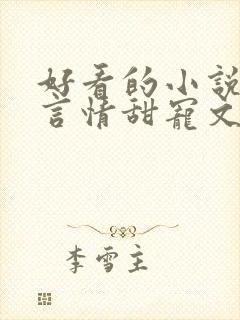 好看的小説
言情甜寵文
李雪主